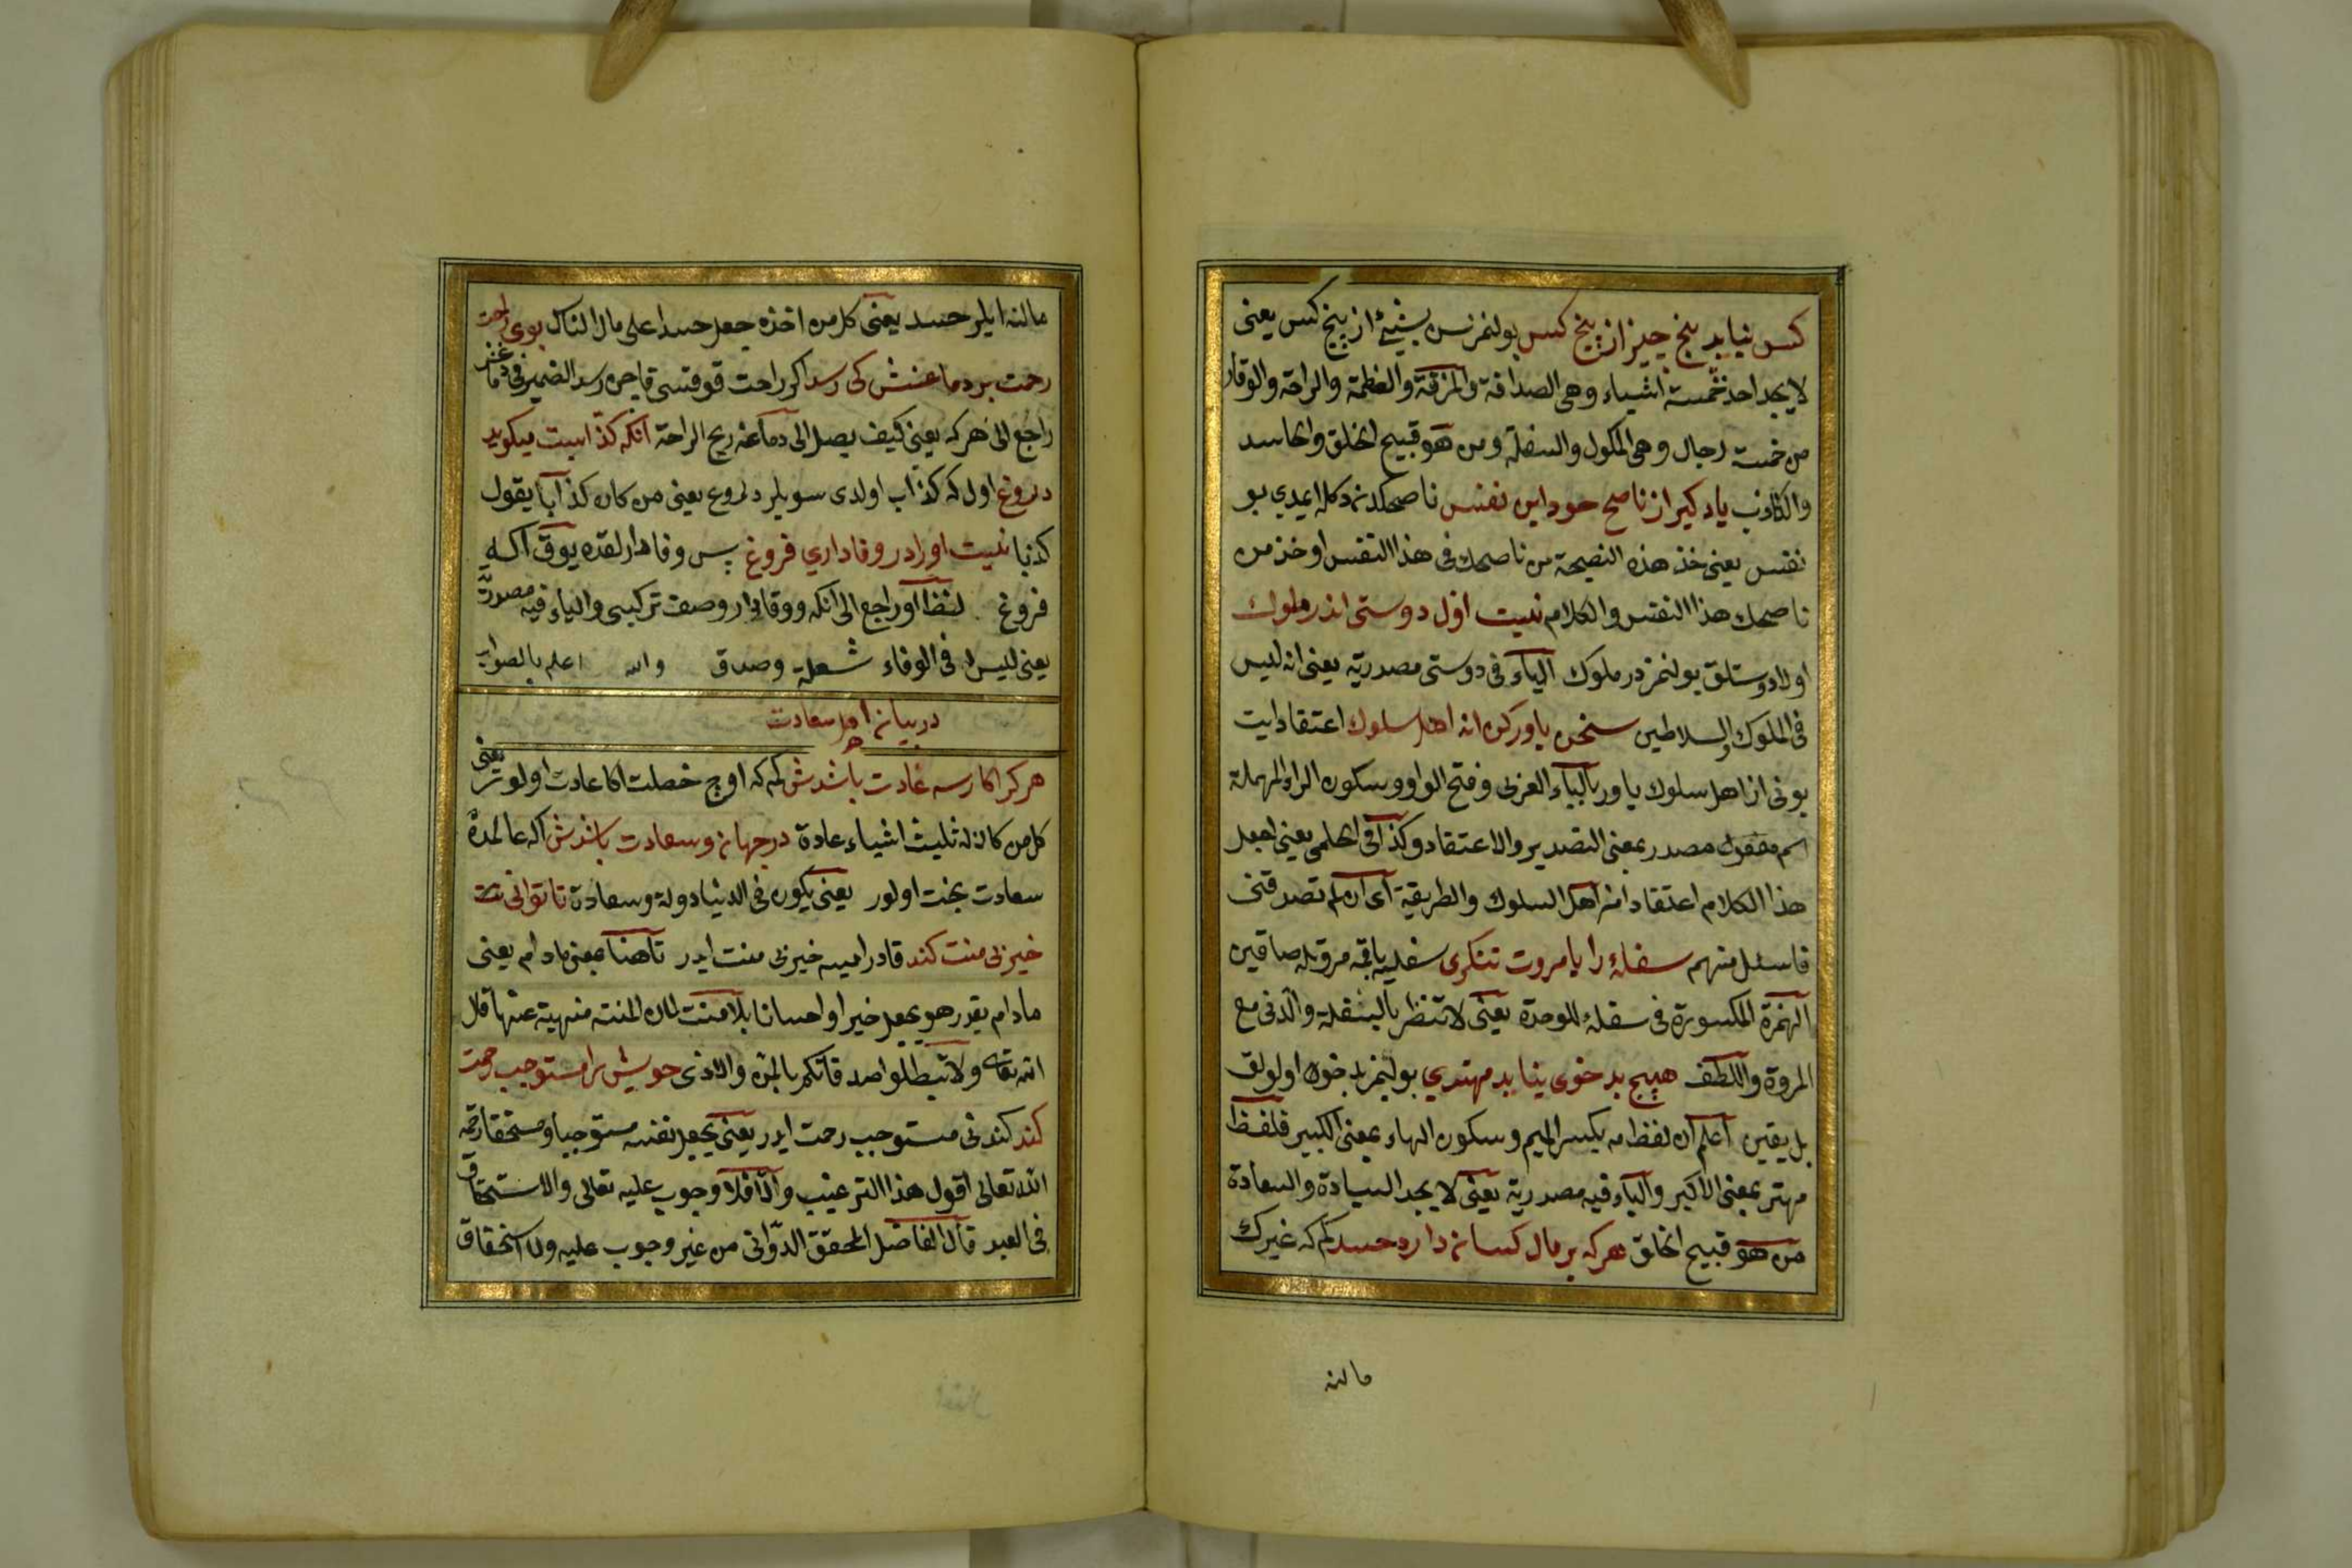 كس نيابد پنج چيز از پنج كس بولنمز بش شيئ از پنج كس يعنى
لا يجد احد خمسة اشياء وهى الصداقة والمزقة والعظمة والراحة والوقار
من خمسة رجال وهى الملوك والسفلة ومن هو قبيح الخلق والحاسد
والكاذب ياد كير از ناصح خود اين نفس ناصحكدن دكله ايمدي بو
نفس يعنى خذ هذه النصيحة من ناصحك فى هذا النفس او خذ من
ناصحك هذا النفس والكلام نيست اول دوستى اندر ملوك
اولا دوستلق بولنمز در ملوك الياء فى دوستى مصدرية يعنى انه ليس
فى الملوك والسلاطين سخن باور كن از اهل سلوك اعتقاد ايت
بونى از اهل سلوك باور بالباء العربى وفتح الواو وسكون الراء المهملة
اسم مصدر بمعنى التصديق والاعتقاد وكذا فى الحلمى يعنى اجعل
هذا الكلام اعتقادا من اهل السلوك والطريقة اى ان لم تصدقنى
فاسئل منهم سفلهٔ را با مروت ننكرى سفليه باقمه مروتله صاقين
الهمزة المكسورة فى سفلهٔ للوحدة يعنى لا تنظر بالسفلة والدنى مع
المروة واللطف هيچ بد خوى نيابد مهتري بولنمز بد خوى اولولق
بل يقين اعلم ان لفظ مه بكسر الميم وسكون الهاء بمعنى الكبير فلفظ
مهتر بمعنى الاكبر والياء فيه مصدرية يعنى لا يجد السيادة والسعادة
من هو قبيح الخلق هركه بر مال كسان دارد حسد كم كه غيرك
مالنه
مالنه ايلر حسد يعنى كل من اخذه جعل حسدا على مال الناس بوى راحت
رحمت بر دماغش كى رسد اكر راحت قوقسى قاچن رسد الضمير فى دماغش
راجع الى هركه يعنى كيف يصل الى دماغه ريح الراحة آنكه كذابست ميكويد
دروغ اول كه كذاب اولدى سويلر دروغ يعنى من كان كذابا يقول
كذبا نيست اورا در وفاداري فروغ پس وفادارلقده يوق اكه
فروغ لفظ اورا راجع الى آنكه ووفادار وصف تركيبى والياء فيه مصدرية
يعنى ليس له فى الوفاء شعلة وصدق والله اعلم بالصواب
در بيان اهل سعادت
هركرا كارسه عادت باشدش كم كه اوچ خصلت اكا عادت اولور يعنى
كل من كان له ثلث اشياء عادة در جهان وسعادت باشدش اكه عالمده
سعادت بخت اولور يعنى يكون فى الدنيا دولة وسعادة تا توانى
خير بى منت كند قادر اميسه خير بى منت ايدر تا هنا بمعنى مادام يعنى
مادام يقدر هو يجعل خيرا واحسانا بلا منت لان المنته منهية عنها قال
الله تعالى ولا تبطلوا صدقاتكم بالمن والاذى خويش را مستوجب رحمت
كند كندنى مستوجب رحمت ايدر يعنى يجعل نفسه مستوجبا ومستحقا رحمة
الله تعالى اقول هذا الترغيب والا فلا وجوب عليه تعالى والاستحقاق
فى العبد قال الفاضل المحقق الدوانى من غير وجوب عليه ولا استحقاق